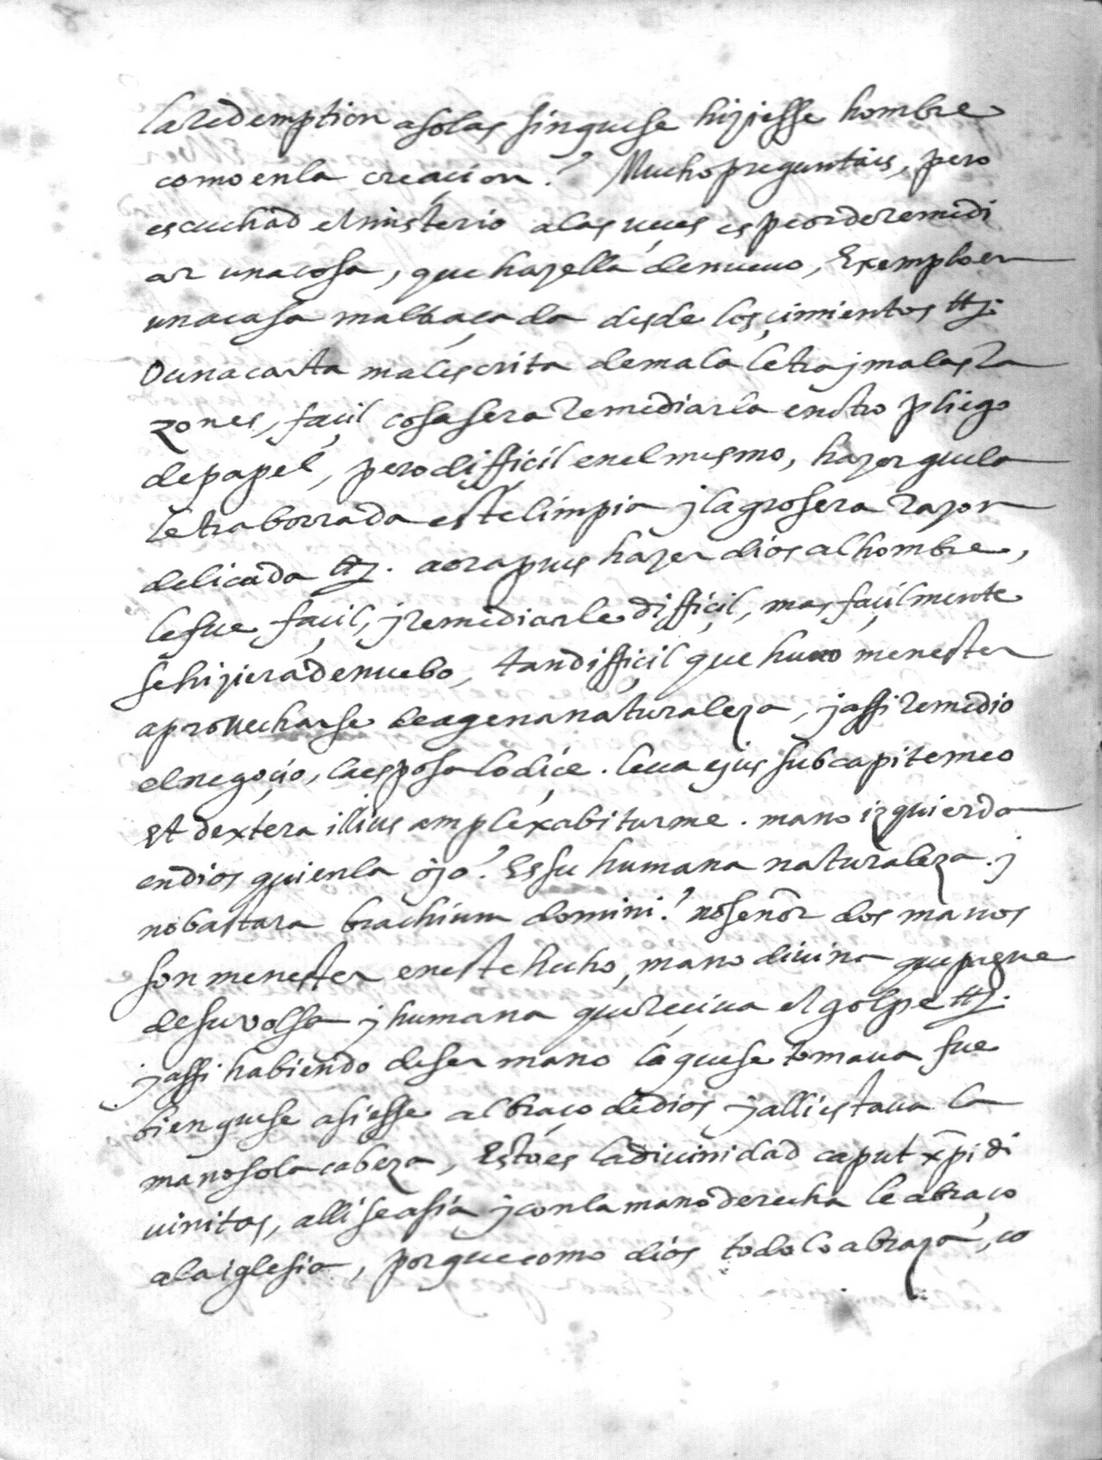 la redemption a solas sin que se hiziesse hombre
como en la creacion? Mucho preguntais, pero
escuchad el misterio a las veçes es peor de remedi
ar una cosa, que hazella de nuevo, Exemplo en
una casa mal traçada desde los çimientos ttz.
O una carta mal escrita de mala letra j malas ra
zones, façil cosa sera remediarla en otro pliego
de papel, pero difficil en el mesmo, hazer que la
letra borrada esté limpia j la grosera razon
delicada ttz. aora pues hazer dios al hombre,
le fue façil, j remediarle diffiçil, mas façilmente
se hiziera de nuebo, tan diffiçil que huuo menester
aprouecharse de agena naturaleza, j assi remedio
el negoçio, la esposa lo diçe. leua ejus sub capite meo
et dextera illius amplexabitur me. mano izquierda
en dios quien la ojo? Es su humana naturaleza. j
no bastara brachium domini? no señor dos manos
son menester en este hecho, mano diuina que pague
de su volsa j humana que reciua el golpe ttz.
j assi habiendo de ser mano la que se tomaua fue
bien que se asiesse al braço de dios j alli estaua la
mano so la cabeza, Esto es la diuinidad caput xpi di
uinitas, alli se asia j con la mano derecha le abraço
a la iglesia, porque como dios todo lo abraza, co